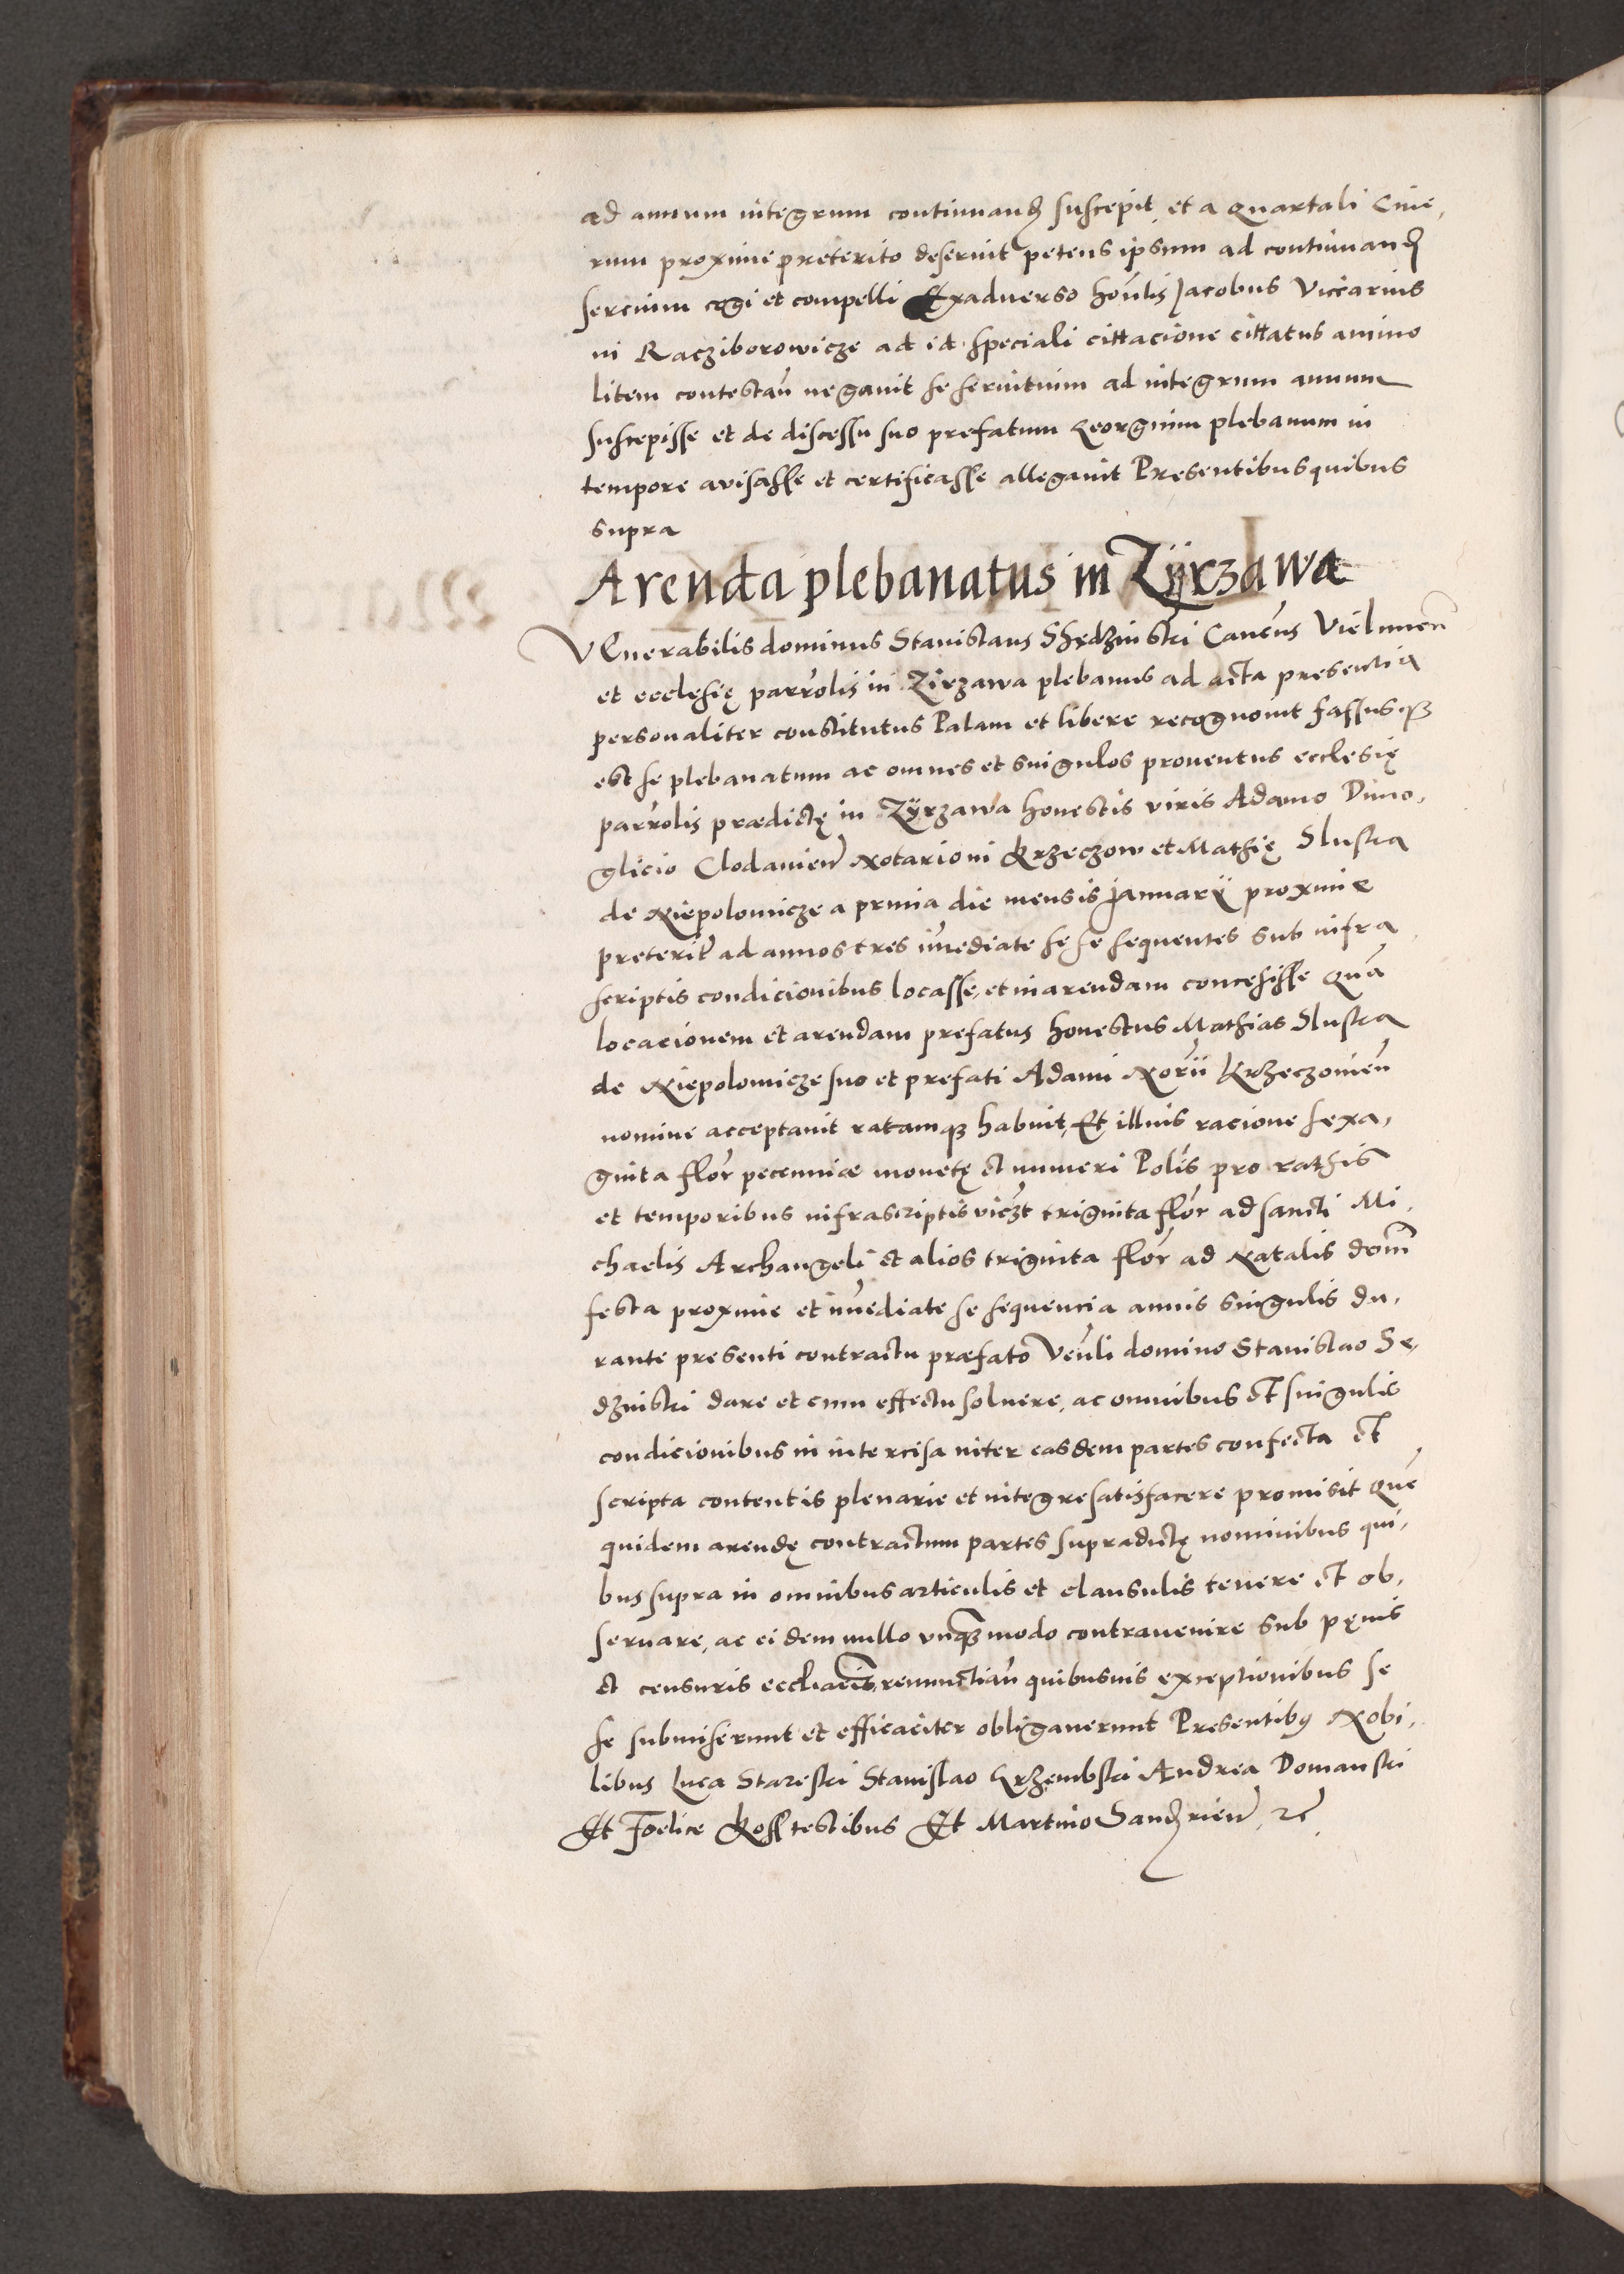 ad annum integrum continuand suscepit et a Quartali Cine,
rum proxime preterito deseruit petens ipsum ad continuand
sercium cogi et compelli Exaduerso honlis Jacobus Viccarius
in Racziborowicze ad id speciali cittacione cittatus animo
litem contestan negauit se seruitium ad integrum annum
suscepisse et de discessu suo prefatum Georgium plebanum in
tempore avisasse et certificasse allegauit Presentibus quibus
supra
Arenda plebanatus in Zÿrzawa
VEnerabilis dominus Stanislaus Shędzinski Canens Vielunen
et ecclesię parrolis in Zirzawa plebanus ad acta presentia
personaliter constitutus Palam et libere recognouit fassusq
est se plebanatum ac omnes et singulos prouentus ecclesię
parrolis prædictę in Zÿrzawa honestis viris Adamo Dimo,
glicio Clodauien Notario in Krzeczow et Mathię Sluska
de Niepolomicze a prima die mensis Januarÿ proxime
preterit ad annos tres imediate se se sequentes sub infra
scriptis condicionibus locasse, et in arendam concesisse Qua
locacionem et arendam prefatus honestus Mathias Sluska
de Niepolomicze suo et prefati Adami Norii Krzeczouien
nomine acceptauit ratamq habuit, Et illius racione sexa,
ginta flor pecuniæ monetę et numeri Polis pro rathis
et temporibus infrascriptis viczt triginta flor ad sancti Mi,
chaelis Archangeli et alios triginta flor ad Natalis dom
festa proxime et imediate se sequencia annis singulis du,
rante presenti contractu præfato Venli domino Stanislao Se,
dzinski dare et cum effectu soluere, ac omnibus et singulis
condicionibus in intercisa inter easdem partes confecta et
scripta contentis plenarie et integre satisfacere promisit Que
quidem arendę contractum partes supradictę nominibus qui,
bus supra in omnibus articulis et clausulis tenere et ob,
seruare, ac ei dem nullo vnqz modo contrauenire sub pęnis
et censuris eccliacis renunctian quibusuis exceptionibus se
se submiserunt et efficaciter obligauerunt Presentibus Nobi,
libus Luca Starzeski Stanislao Grzembski Andrea Domanski
Et Foelice Koss testibus Et Martino Sandrien, etc